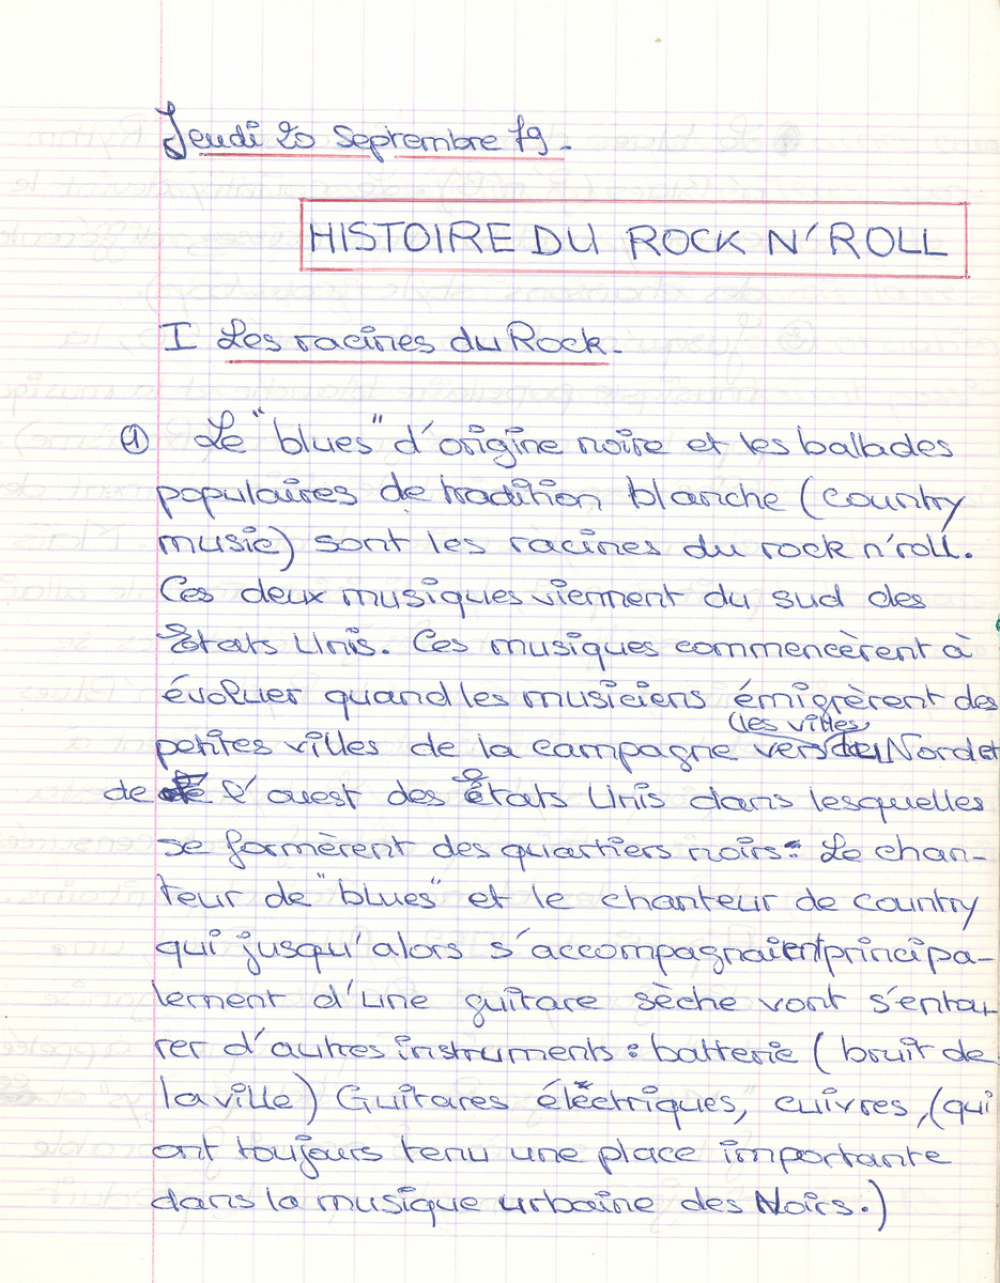 Jeudi 20 Septembre 79.
HISTOIRE DU ROCK N'ROLL
I Les racines du Rock.
① Le "blues" d'origine noire et les ballades
populaires de tradition blanche (country
music) sont les racines du rock n'roll.
Ces deux musiques viennent du sud des
États Unis. Ces musiques commencèrent à
évoluer quand les musiciens émigrèrent des
(les villes
petites villes de la campagne vers du Nord et
de l'ouest des États Unis dans lesquelles
se formèrent des quartiers noirs. Le chan-
teur de "blues" et le chanteur de country
qui jusqu'alors s'accompagnaient principa-
lement d'une guitare sèche vont s'entou-
rer d'autres instruments : batterie (bruit de
la ville) Guitares électriques, cuivres, (qui
ont toujours tenu une place importante
dans la musique urbaine des Noirs.)